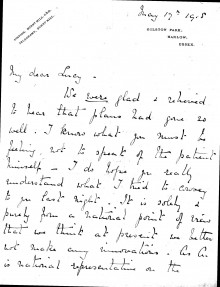 May 17th 1915
HULSTON PARK,
HARLOW,
ESSEX.
My dear Lucy -
We were glad & relieved
to hear that plans had gone so
well. I know what you must be
feeling, not to speak of the patient
himself - I do hope you really
understand what I tried to convey
to you last night. It is solely
purely from a national point of view
that we think at present we better
not make any innovations. As
is national representation on the